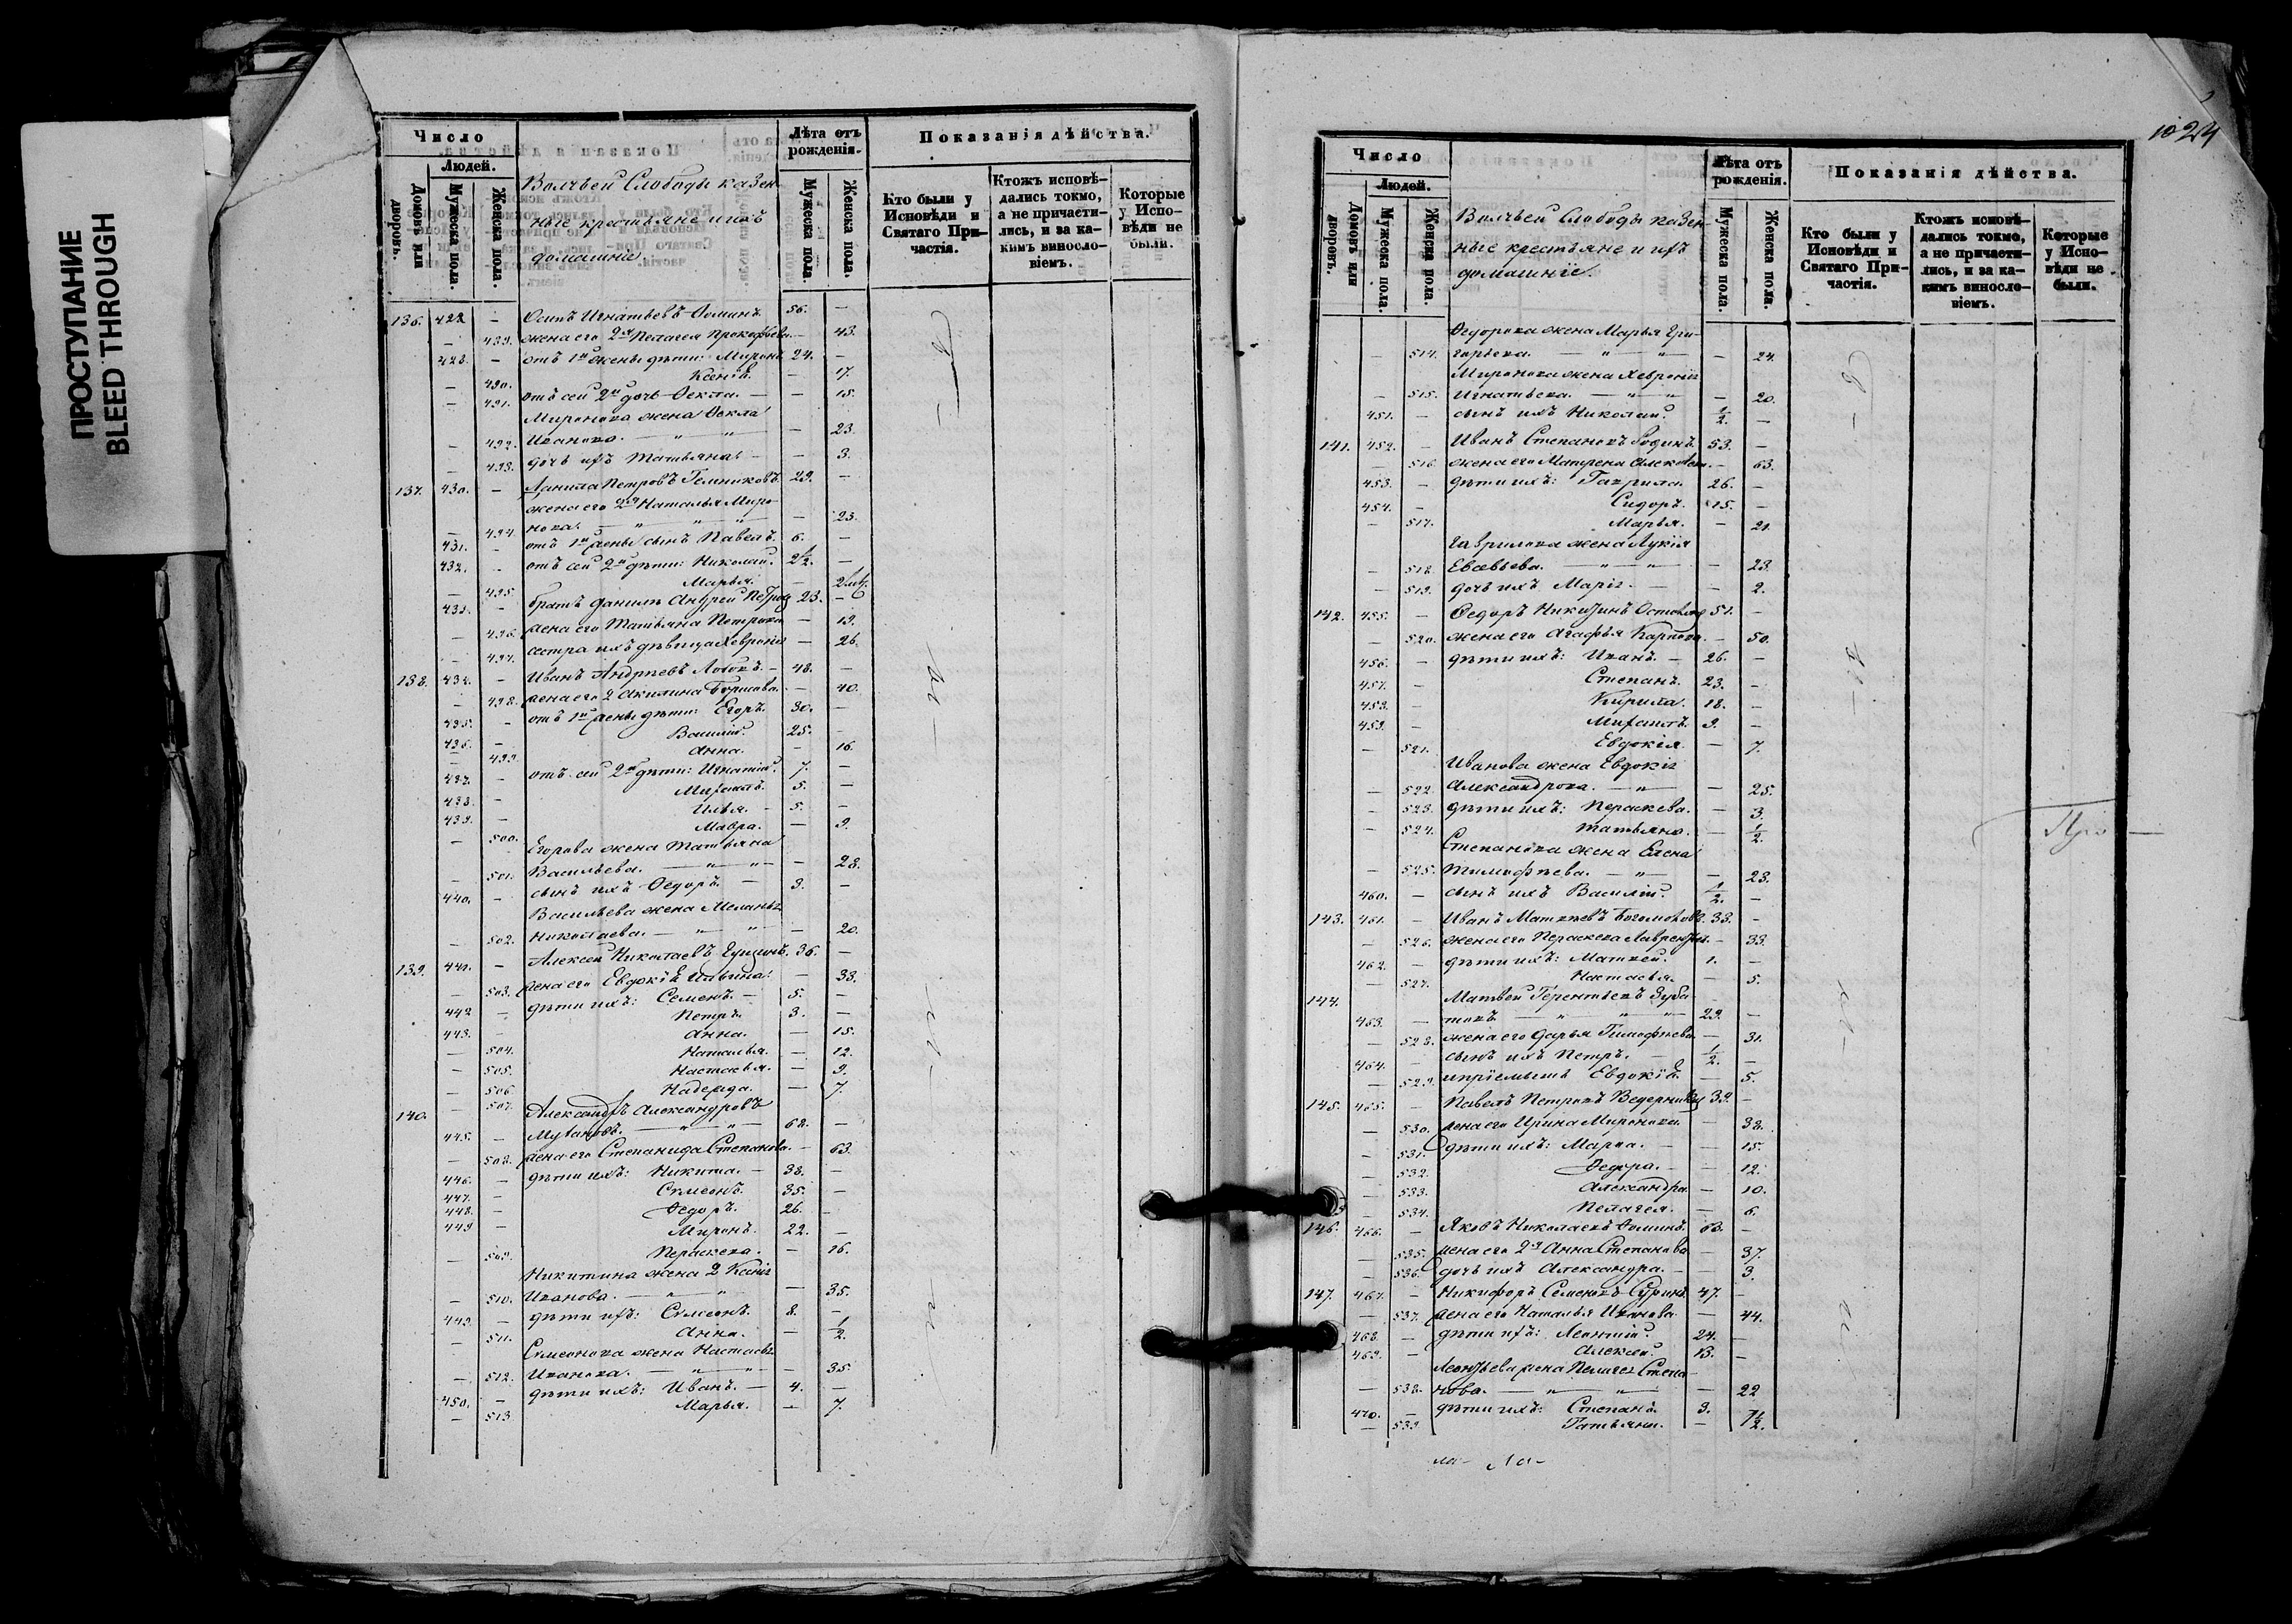 ПРОСТУПАНИЕ
BLEED THROUGH
Число
Людей.
Домовъ или дворовъ.
Мужеска пола.
Женска пола.
Волчьей Слободы казен
ные крестьяне и ихъ
домашніе.
Лѣта отъ рожденія.
Мужеска пола.
Женска пола.
Показанія дѣйства.
Кто были у Исповѣди и Святаго Причастія.
Ктожъ исповѣдались токмо, а не причастились, и за какимъ винословіемъ.
Которые у Исповѣди не были.
136. 422 — Осипъ Игнатьевъ Ѳоминъ 56. —
— 489. жена его 2я Пелагея Прокофьева — 43.
428. — отъ 1й жены дѣти: Миронъ 24. —
— 490. Ксенія. — 17.
— 491. отъ сей 2й дочь Ѳекла. — 15.
Миронова жена Ѳекла
— 492. Иванова. — 23.
— 493. дочь ихъ Татьяна — 3.
137. 430. — Данила Петровъ 29. —
жена его 2я Наталья Миро
— 494. нова. — 23.
431. — отъ 1й жены сынъ Павелъ. 6. —
432. — отъ сей 2й дѣти: Николай. 2½. —
— 495. Марья. —
433. — братъ Данилы Андрей Петров 23. —
— 496. жена его Татьяна Петрова — 19.
— 497. сестра ихъ дѣвица Хевронія — 26.
138. 434. — Иванъ Андреевъ 48. —
— 498. жена его 2 Акилина Борисова. — 40.
435. — отъ 1й жены дѣти: Егоръ. 30. —
436. — Василій. 25. —
— 499. Анна. — 16.
437. — отъ сей 2й дѣти: Игнатій. 7. —
438. — Михаилъ. 5. —
439. — Илья. 5. —
— 500. Мавра. — 9.
Егорова жена Татьяна
— 501. Васильева. — 28.
440. — сынъ ихъ Ѳедоръ. 3. —
Васильева жена Меланья
— 502. Николаева. — 20.
139. 441. — Алексей Николаевъ 36. —
— 503. жена его Евдокія Ильина — 38.
442 — дѣти ихъ: Семенъ. 5. —
443. — Петръ. 3. —
— 504. Анна. — 15.
— 505. Наталья. — 12.
— 506. Настасья. — 9.
— 507. Надежда. — 7.
140. Александръ Александровъ
445. — 62. —
— 508. жена его Степанида Степанова. — 63.
446. — дѣти ихъ: Никита. 38. —
447. — Симеонъ. 35. —
448. — Ѳедоръ. 26. —
449 — Миронъ. 22. —
— 509. Пераскева. — 16.
Никитина жена 2 Ксенія
— 510. Иванова. — 35.
449. — дѣти ихъ: Симеонъ. 8. —
— 511. Анна. — ½
Симеонова жена Настасья
— 512. Иванова. — 35.
450. — дѣти ихъ: Иванъ. 4. —
— 513 Марья. — 7.
1024
Число
Людей.
Домовъ или дворовъ.
Мужеска пола.
Женска пола.
Волчьей Слободы казен
ные крестьяне и ихъ
домашніе.
Лѣта отъ рожденія.
Мужеска пола.
Женска пола.
Показанія дѣйства.
Кто были у Исповѣди и Святаго Причастія.
Ктожъ исповѣдались токмо, а не причастились, и за какимъ винословіемъ.
Которые у Исповѣди не были.
Ѳедорова жена Марья Гри-
— 514. горьева. — 24.
Миронова жена Хевронія
— 515. Игнатьева. — 20.
451. — сынъ ихъ Николай. ½. —
141. 452. — Иванъ Степановъ Родинъ 53. —
— 516. жена его Матрена — 63.
453. — дѣти ихъ: Гаврила. 26. —
454. — Сидоръ. 15. —
— 517. Марья. — 21.
Гаврилова жена Лукія
— 518. Евсевьева. — 23.
— 519. дочь ихъ Марія. — 2.
142. 455. — Ѳедоръ Никитинъ 51. —
— 520. жена его Агафья Карпова. — 50.
456. — дѣти ихъ: Иванъ. 26. —
457. — Степанъ. 23. —
458. — Кирила. 18. —
459. — Михаилъ. 9. —
— 521. Евдокія. — 7.
Иванова жена Евдокія
— 522. Александрова. — 25.
— 523. дѣти ихъ: Пераскева. — 3.
— 524. Татьяна. — ½.
Степанова жена Елена
— 525. Тимофѣева. — 23.
460. — сынъ ихъ Василій. ½. —
143. 461. — Иванъ Матвѣевъ Богомоловъ. 33. —
— 526. жена его Пераскева Лаврентьев. — 33.
462. — дѣти ихъ: Матвей. 1. —
— 527. Настасья. — 5.
144. Матвей Терентьевъ Зуба
463. — товъ 29. —
— 528. жена его Дарья Тимофѣева — 31.
464. — сынъ ихъ Петръ. ½. —
— 529. пріемышъ Евдокія. — 5.
145. 465. — Павелъ Петровъ Ведерников 39. —
— 530. жена его Ирина Миронова. — 38.
— 531. дѣти ихъ: Марѳа. — 15.
— 532. Ѳедора. — 12.
— 533. Александра. — 10.
— 534. Пелагея. — 6.
146. 466. — Яковъ Николаевъ Ѳоминъ. 63. —
— 535. жена его 2я Анна Степанова — 37.
— 536. дочь ихъ Александра. — 3.
147. 467. — Никифоръ Семеновъ Суринъ 47. —
— 537. жена его Наталья Иванова — 44.
468. — дѣти ихъ: Леонтій. 24. —
469. — Алексей. 13. —
Леонтьева жена Пелагея Степа
— 538. нова. — 22
470. — дѣти ихъ: Степанъ. 3. —
— 539 Татьяна. — 1½.